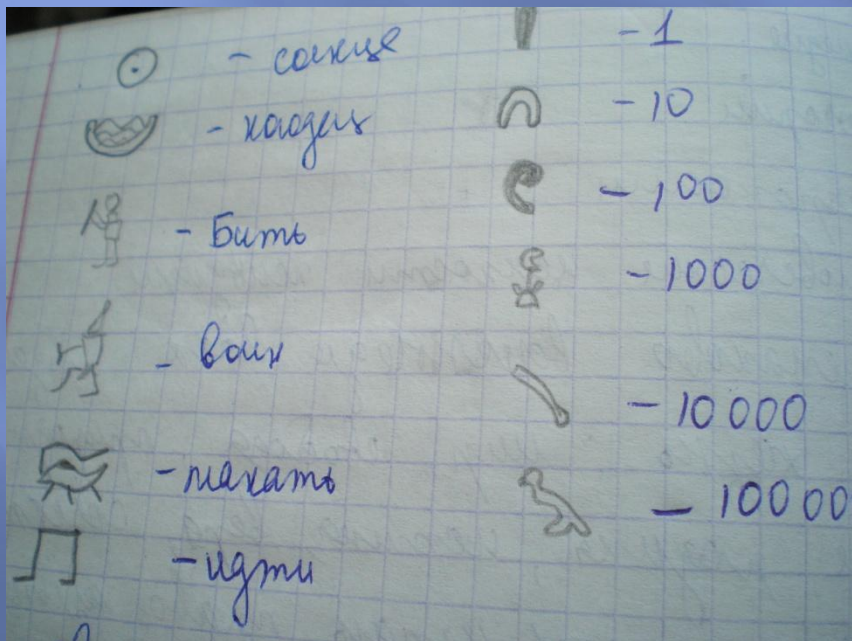 - солнце
- колодец
- Бить
- воин
- плакать
- идти
- 1
- 10
- 100
- 1000
- 10000
- 10000